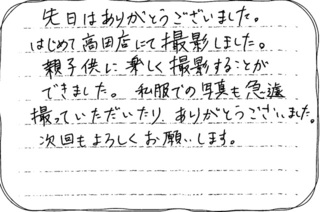 先日はありがとうございました。
はじめて高田店にて撮影しました。
親子供に楽しく撮影することが
できました。私服での写真も急遽
撮っていただいたり、ありがとうございました。
次回もよろしくお願いします。